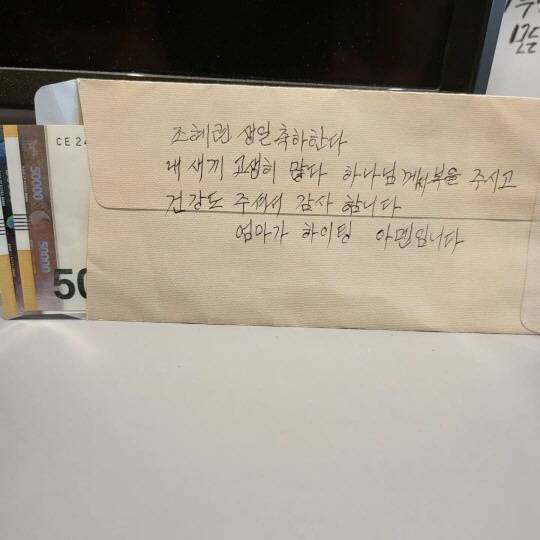 조혜련 생일 축하한다
내 새끼 고생히 많다 하나님께서 복을 주시고
건강도 주셔서 감사 합니다
엄마가 하이팅 아멘입니다
CE 24
50000
50000
50